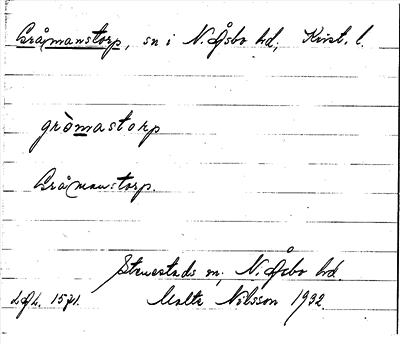 Gråmanstorp, sn i N. Åsbo hd, Krist. l.
gròmastorp
Gråmanstorp.
Stenestads sn, N. Åsbo hd.
Malte Nilsson 1932.